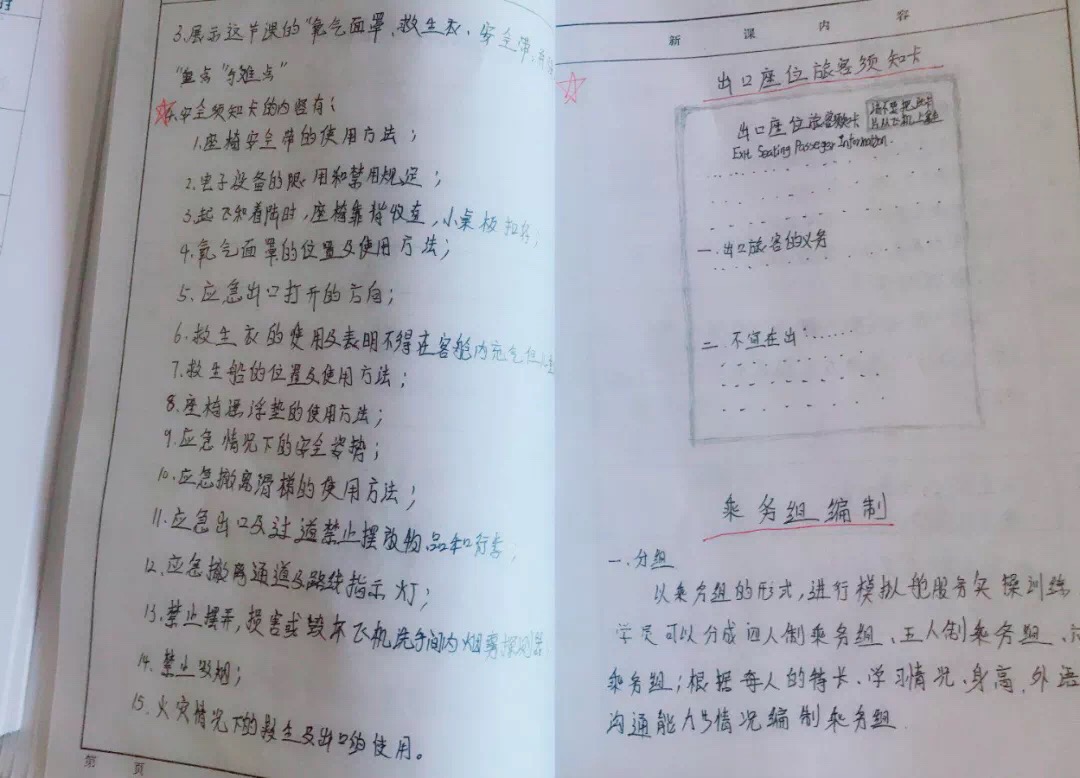 3.展示这节课的"氧气面罩、救生衣、安全带
"重点"与难点"
安全须知卡的内容有:
1.座椅安全带的使用方法;
2.电子设备的限用和禁用规定;
3.起飞和着陆时,座椅靠背收直,小桌板扣好;
4.氧气面罩的位置及使用方法;
5.应急出口打开的方向;
6.救生衣的使用及表明不得在客舱内充气
7.救生船的位置及使用方法;
8.座椅漂浮垫的使用方法;
9.应急情况下的安全姿势;
10.应急撤离滑梯的使用方法;
11.应急出口及过道禁止摆放物品和行李;
12.应急撤离通道及路线指示灯;
13.禁止摆弄,损害或毁坏飞机洗手间内烟雾探测器
14.禁止吸烟;
15.火灾情况下的救生及出口的使用。
第 页
新 课 内 容
出口座位旅客须知卡
出口座位旅客须知卡
请不要把此卡
Exit Seating Passeger Information.
一.出口旅客的义务
二.不宜在出:......
乘务组编制
一.分组
以乘务组的形式,进行模拟舱服务实操训练
学员可以分成四人制乘务组、五人制乘务组、
乘务组;根据每人的特长、学习情况、身高、外语
沟通能力等情况编制乘务组.